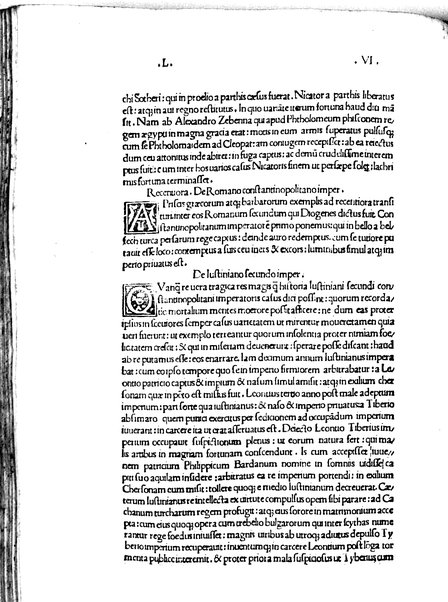 .L. .VI.
chi Sotheri: qui in proelio a parthis cæsus fuerat. Nicator a parthis liberatus
est: atq; in aut regno restitutus. In quo uarietate iterum fortuna haud diu mã
sit. Nam ab Alexandro Zebenna qui apud Phtholomeum phisconem re
gem ægypti in magna gratia erat: motis in eum armis superatus pulsusq;
cum se Phtholomaidem ad Cleopat: am coniugem recepisset: ab ea reiectus
dum ceu attonitus inde abiret: in fuga captus: ac demũ crudelissime interem
ptus fuit: cum inter hos uarios casus Nicatoris finem ut persæpe solet lachri
mis fortuna terminasset.
Recentiora. De Romano constantinopolitano imper.
A Priscis græcorum atq; barbarorum exemplis ad recentiora transi
turus inter eos Romanum secundum qui Diogenes dictus fuit Con
stantinopolitanum imperatorẽ primo ponemus: qui in bello a bel
fech turca persarum rege captus: deinde auro redemptus. cum se tutiore pu
tauit esse loco: contemptus a suis ceu iners & excors: luminibus simul atq; im
perio priuatus est.
De Iustiniano secundo imper.
Vanq̃ re uera tragica res magis q̃ historia Iustiniani secundi con
stantinopolitani imperatoris casus dici possint: quorum recorda
tio mortalium mentes moerore possit afficere: ne dum eas proter
ipsius in securiores semper casus uarietatem ut mirentur moueret: tamen quia
ueri fuerunt: ut exemplo terreantur quorum insolentia proter nimiam foe
licitatem crescit: & qui in miseriam deuenerunt: sperare posse discant: haud
ab re putamus esse: eos enarrare. Iam decimum annum Iustinianus impera
bat: cum eo ipso tempore quo se in imperio firmiorem arbitrabatur: a Le
ontio patricio captus & imperium & nasum simul amisit: atq; in exilium cher
sonam quæ in põto est missus fuit. Leontius tertio anno post male adeptum
imperium: pari sorte qua iustinianus: & naso & imperio priuatus a Tiberio
absimaro quem punici exercitus per seditionem ad occupãdum imperium
iuuerant: in carcere ita ut erat asseruatus est. Deiecto Leontio Tiberius im
perium occupauit suspitionum plenus: ut eorum natura fert: qui ma
lis artibus in magnam fortunam conscendunt. Is cum accepisset iuue,
nem patricium Philippicum Bardanum nomine in somnis uidisse ca
piti suo aquilam insidere: arbitratus ea re imperium portendi: in exilium
Chersonam eum misit: tollere quoq; e medio Iustinianum decreuerat. Cæ
terum Iustinianus re intellecta ex uirtute compulsus opem sibi parare: ad Ca
chanum turcharum regem profugit: atq; eius sorore in matrimonium acce
pta: cum eius quoq; opera cum trebelio bulgarorum qui inter scythas nume
rantur rege foedus iniuisset: magnis uiribus ab utroq; adiutus depulso Ty
berio imperium recuperauit: inuentumq; in carcere Leontium post lõga tor
menta publice interemit. & proter priora mala suspiciosus ut Tyberius cum